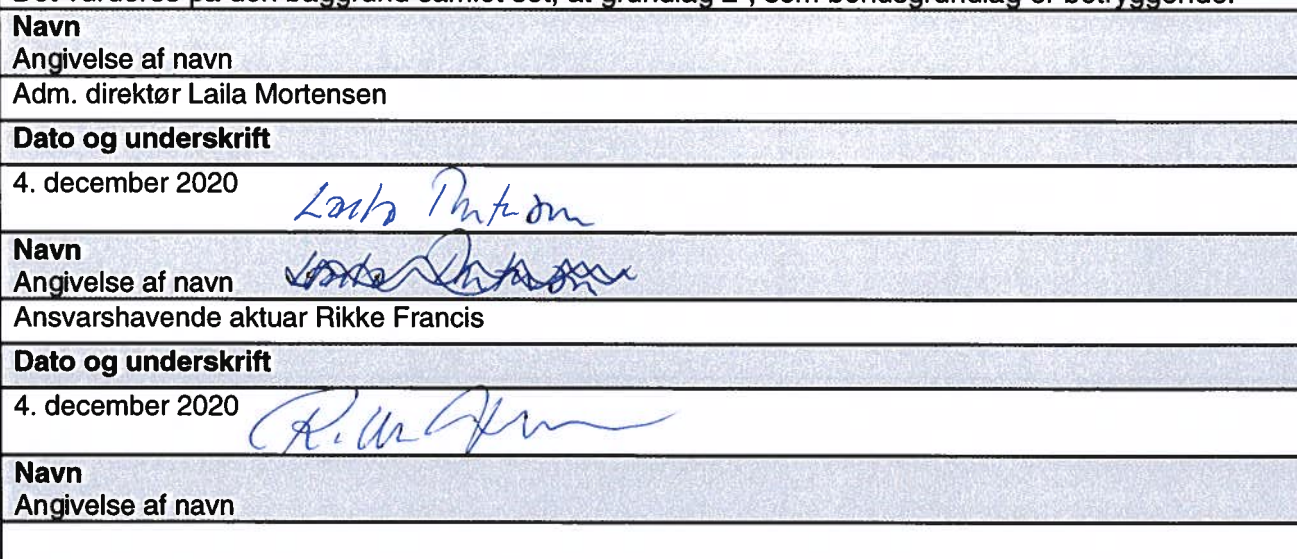 Navn
Angivelse af navn
Adm. direktør Laila Mortensen
Dato og underskrift
4. december 2020
Navn
Angivelse af navn
Ansvarshavende aktuar Rikke Francis
Dato og underskrift
4. december 2020
Navn
Angivelse af navn